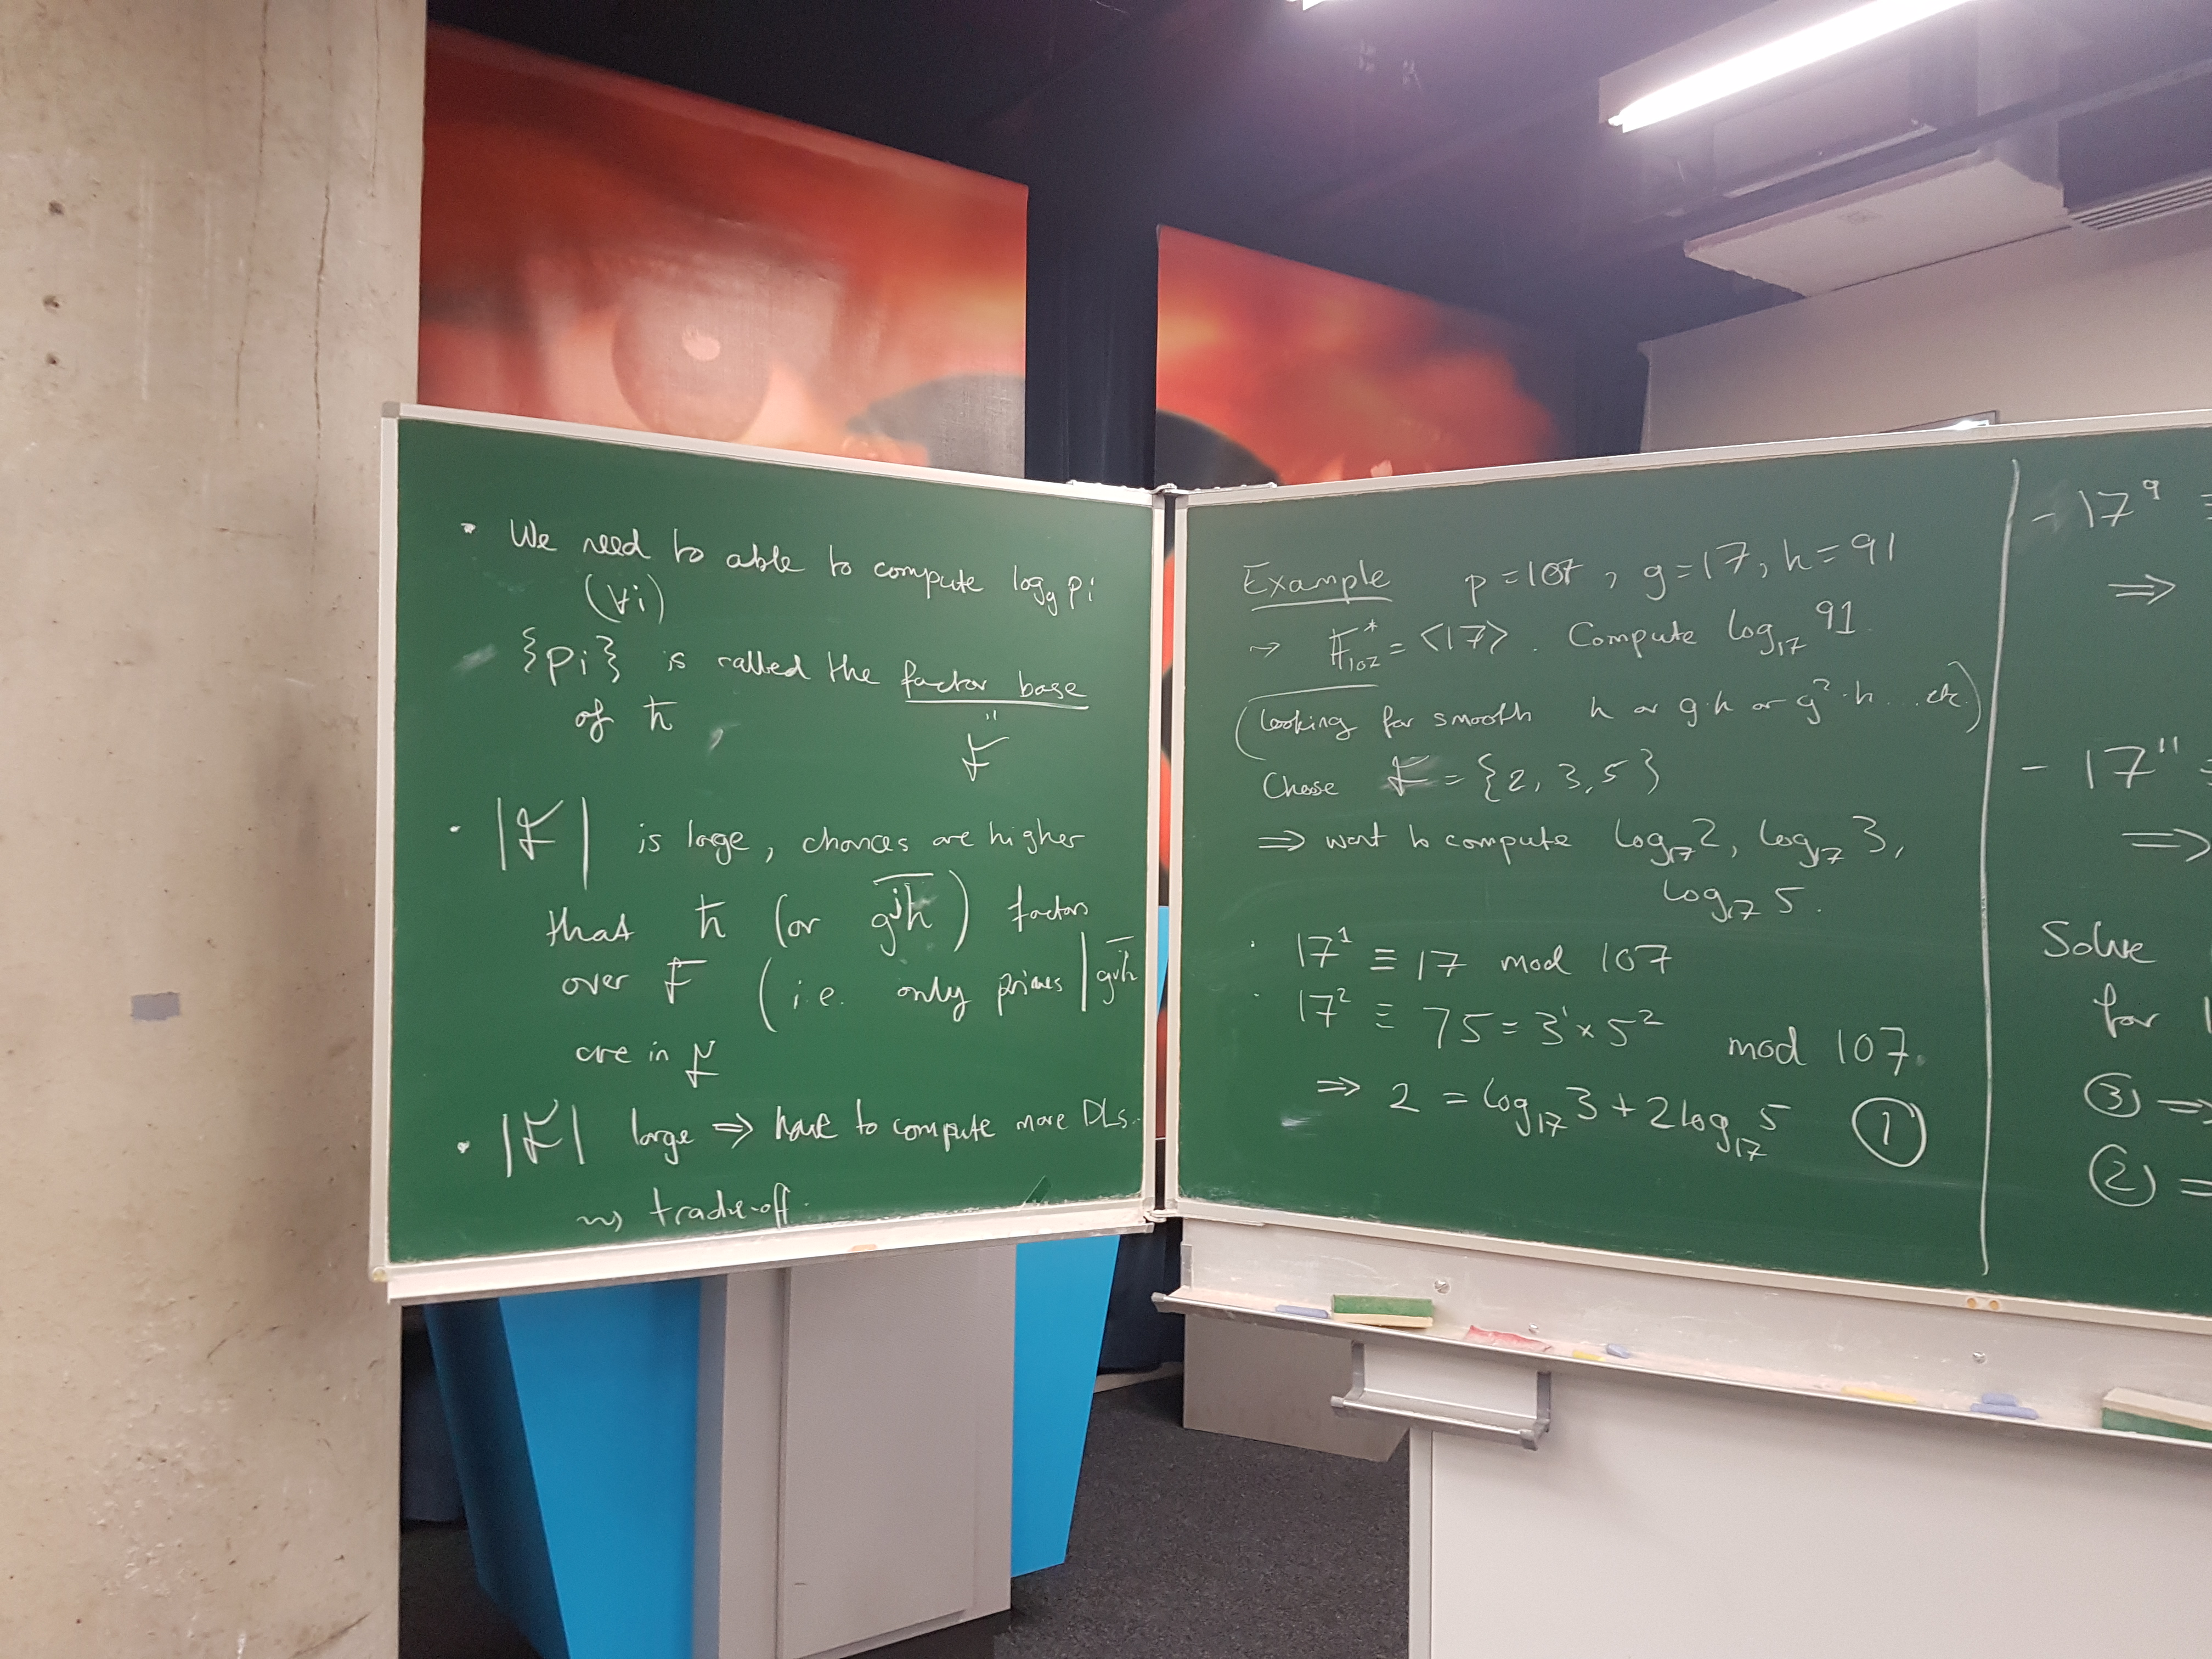 • We need to able to compute log_g pi
(∀i)
{pi} is called the factor base
of h̄ , "
F
• |F| is large, chances are higher
that h̄ (or \overline{g^j h}) factors
over F (i.e. only primes | \overline{g^j h}
are in F
• |F| large ⇒ have to compute more DLs.
⇝ trade-off.
Example p = 107, g = 17, h = 91
→ F*_107 = ⟨17⟩. Compute log_17 91.
(looking for smooth h or g·h or g²·h ... etc.)
Chose F = {2, 3, 5}
⇒ want to compute log_17 2, log_17 3,
log_17 5.
• 17^1 ≡ 17 mod 107
• 17^2 ≡ 75 = 3^1 × 5^2 mod 107.
⇒ 2 = log_17 3 + 2 log_17 5 ①
- 17^9 ≡
⇒
- 17^11 ≡
⇒
Solve
for
③ ⇒
② ⇒